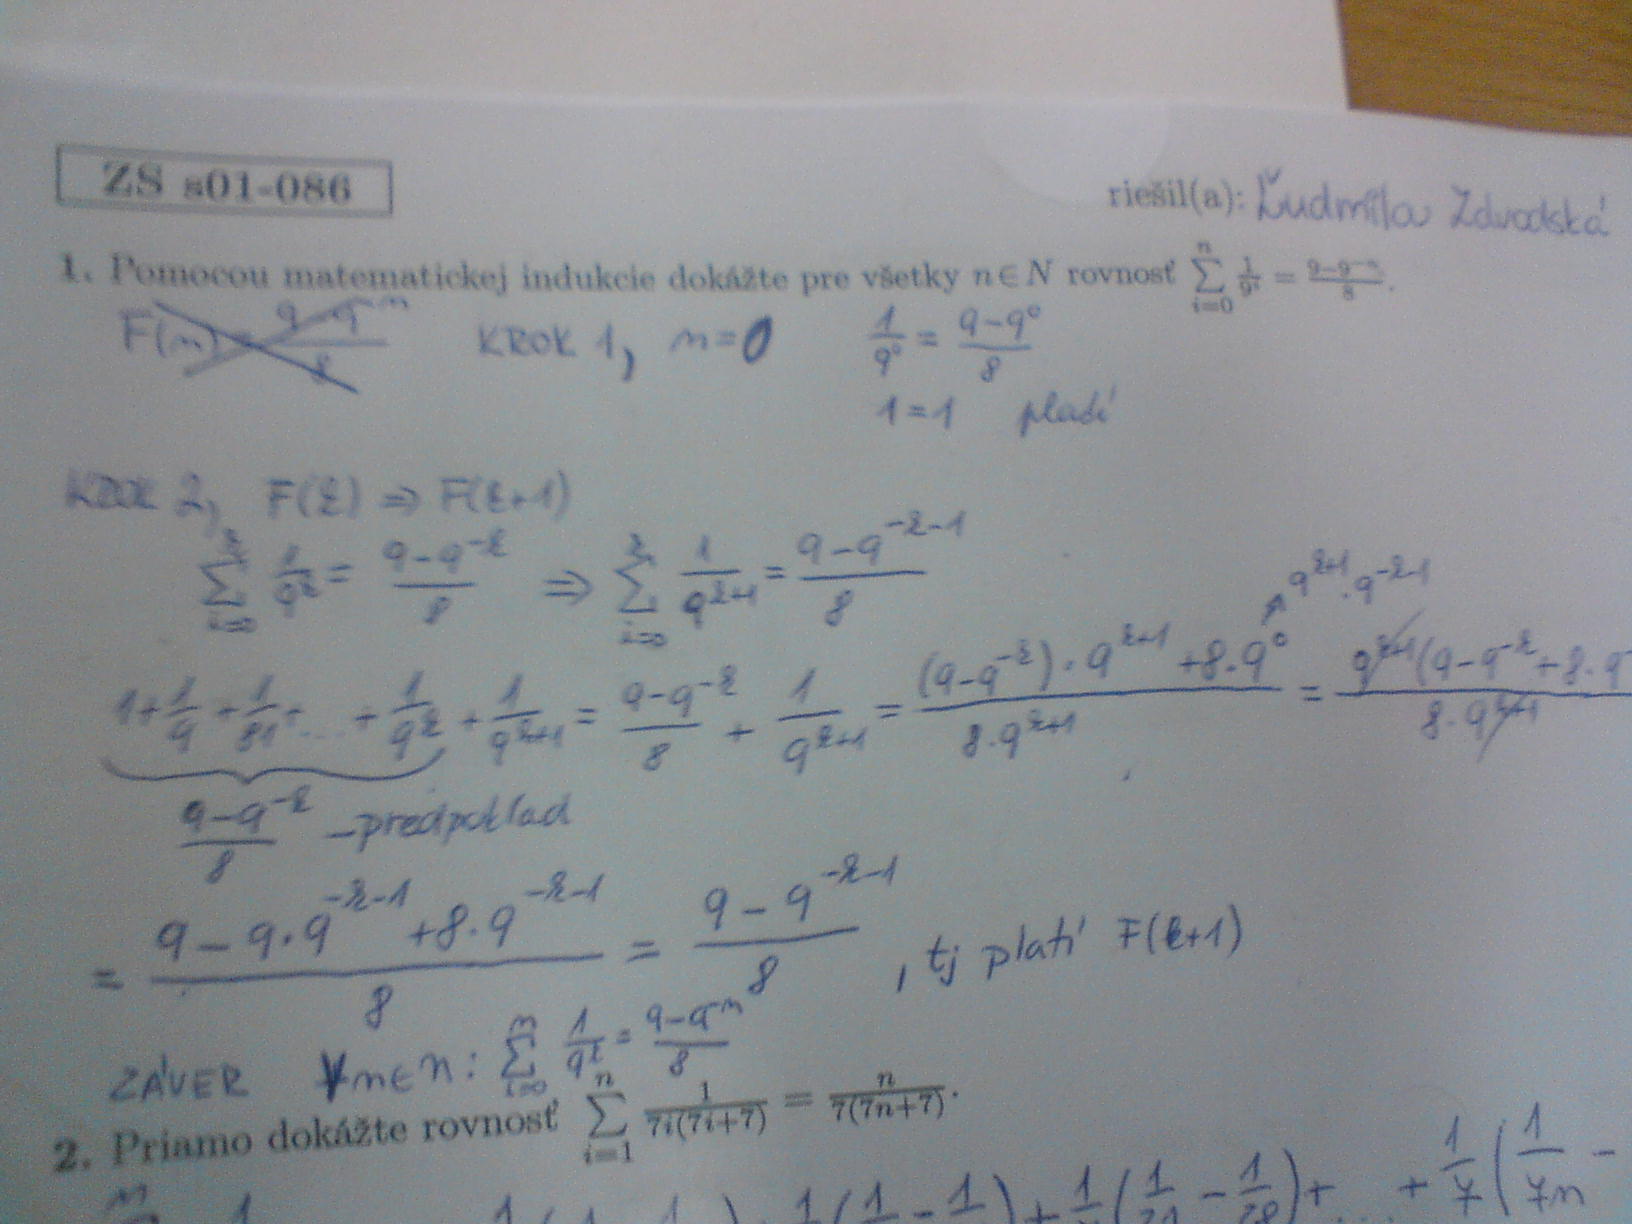 ZS s01-086
riešil(a): Ľudmila
1. Pomocou matematickej indukcie dokážte pre všetky n∈N rovnosť \sum_{i=0}^{n} \frac{1}{9^i} = \frac{9-9^{-n}}{8}.
F(n) = \frac{9-9^{-n}}{8} KROK 1, n=0 \frac{1}{9^0} = \frac{9-9^0}{8}
1=1 platí
KROK 2, F(k) ⇒ F(k+1)
\sum_{i=0}^{k} \frac{1}{9^k} = \frac{9-9^{-k}}{8} ⇒ \sum_{i=0}^{k} \frac{1}{9^{k+1}} = \frac{9-9^{-k-1}}{8}
9^{k+1}.9^{-k-1}
1+\frac{1}{9}+\frac{1}{81}+...+\frac{1}{9^k}+\frac{1}{9^{k+1}} = \frac{9-9^{-k}}{8}+\frac{1}{9^{k+1}} = \frac{(9-9^{-k}).9^{k+1}+8.9^0}{8.9^{k+1}} = \frac{9^{k+1}(9-9^{-k}+8.9^-}{8.9^{k+1}}
\frac{9-9^{-k}}{8} -predpoklad
= \frac{9-9.9^{-k-1}+8.9^{-k-1}}{8} = \frac{9-9^{-k-1}}{8}, tj platí F(k+1)
ZÁVER ∀n∈n: \sum_{i=0}^{n} \frac{1}{9^k} = \frac{9-9^{-n}}{8}
2. Priamo dokážte rovnosť \sum_{i=1}^{n} \frac{1}{7i(7i+7)} = \frac{n}{7(7n+7)}.
+ \frac{1}{7}(\frac{1}{7n} -